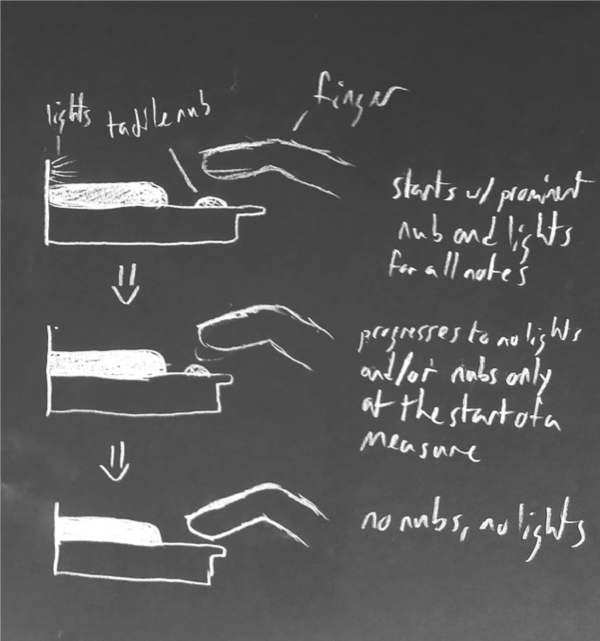 lights
tactile nub
finger
starts w/ prominent
nub and lights
for all notes
progresses to no lights
and/or nubs only
at the start of a
measure
no nubs, no lights